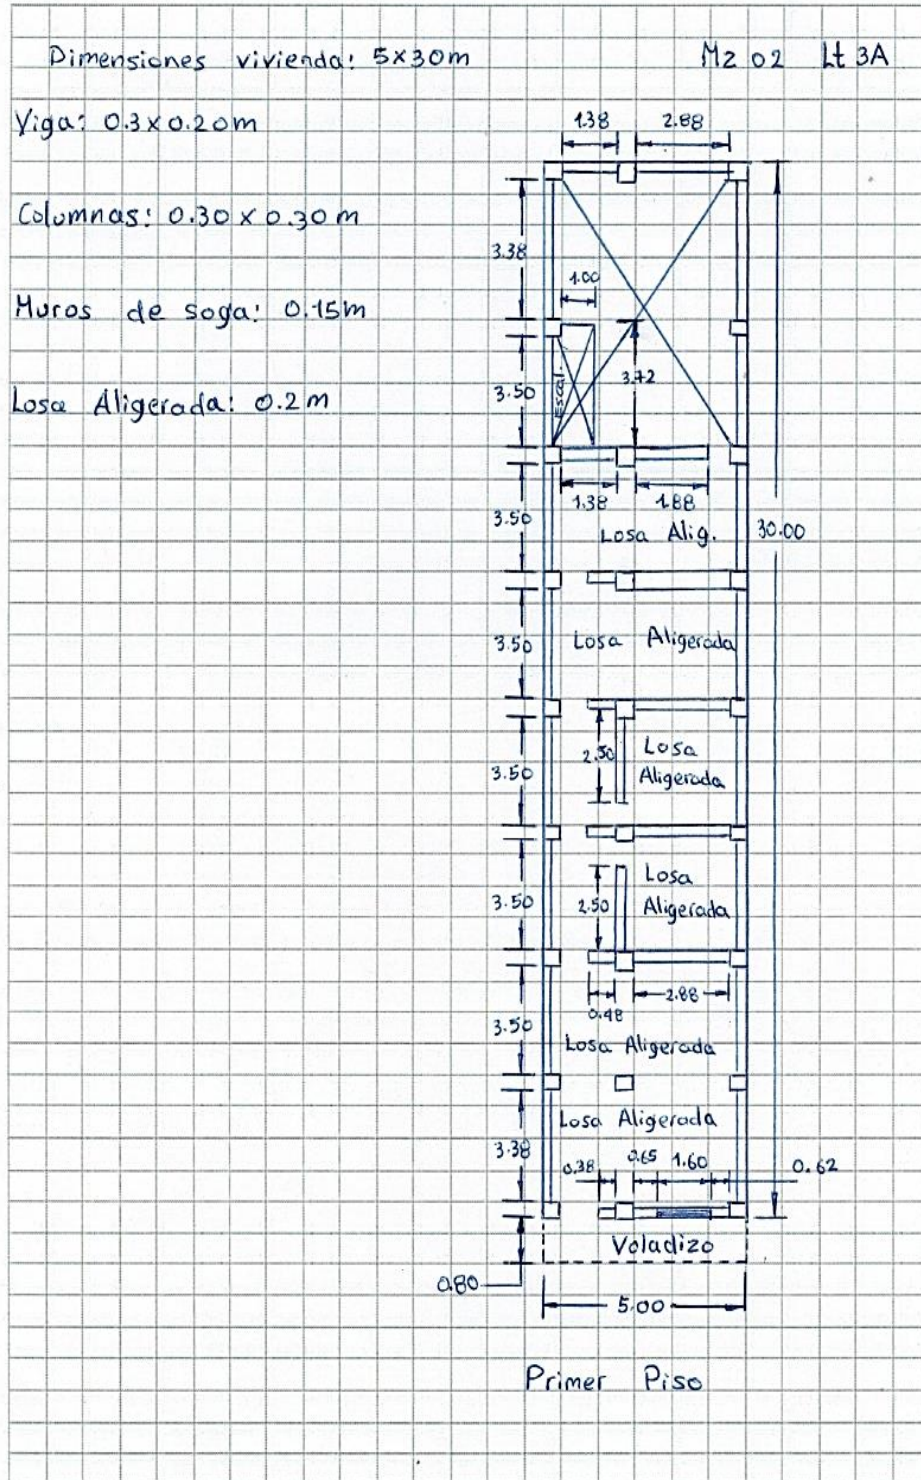 Dimensiones vivienda: 5x30m
Mz 02 Lt 3A
Viga: 0.3 x 0.20m
1.38 2.88
Columnas: 0.30 x 0.30m
3.38
1.00
Muros de soga: 0.15m
3.50
Escal.
3.72
Losa Aligerada: 0.2m
1.38 1.88
3.50
Losa Alig.
30.00
3.50
Losa Aligerada
3.50
2.50
Losa
Aligerada
3.50
2.50
Losa
Aligerada
0.48
2.88
3.50
Losa Aligerada
Losa Aligerada
3.38
0.38 0.65 1.60 0.62
Voladizo
0.80
5.00
Primer Piso